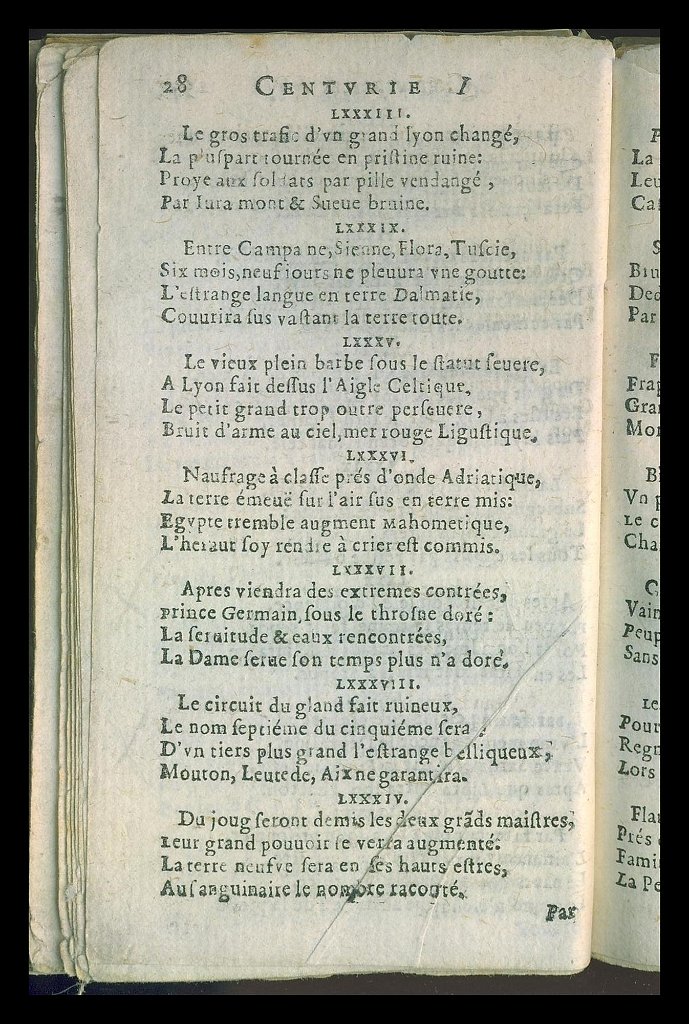 28 CENTVRIE I
LXXXIII.
Le gros trafic d'vn grand lyon changé,
La pluſpart tournée en priſtine ruine:
Proye aux ſoldats par pille vendangé,
Par Iura mont & Sueue bruine.
LXXXIX.
Entre Campa ne, Sienne, Flora, Tuſcie,
Six mois, neuf iours ne pleuura vne goutte:
L'eſtrange langue en terre Dalmatie,
Couurira ſus vaſtant la terre toute.
LXXXV.
Le vieux plein barbe ſous le ſtatut ſeuere,
A Lyon fait deſſus l'Aigle Celtique,
Le petit grand trop outre perſeuere,
Bruit d'arme au ciel, mer rouge Liguſtique.
LXXXVI.
Naufrage à claſſe prés d'onde Adriatique,
La terre émeuë ſur l'air ſus en terre mis:
Egypte tremble augment Mahometique,
L'heraut ſoy rendre à crier eſt commis.
LXXXVII.
Apres viendra des extremes contrées,
Prince Germain, ſous le throſne doré:
La ſeruitude & eaux rencontrées,
La Dame ſerue ſon temps plus n'a doré.
LXXXVIII.
Le circuit du gland fait ruineux,
Le nom ſeptiéme du cinquiéme ſera:
D'vn tiers plus grand l'eſtrange belliqueux,
Mouton, Leutede, Aix ne garantira.
LXXXIV.
Du joug ſeront demis les deux grãds maiſtres,
Leur grand pouuoir ſe verra augmenté:
La terre neufve ſera en ſes hauts eſtres,
Au ſanguinaire le nombre raconté.
Par
P
La
Leu
Ca
S
Bru
Ded
Par
F
Frap
Gra
Mor
B
Vn p
Le c
Cha
C
Vain
Peup
Sans
Le
Pour
Regn
Lors
Fla
Prés
Fami
La Pe